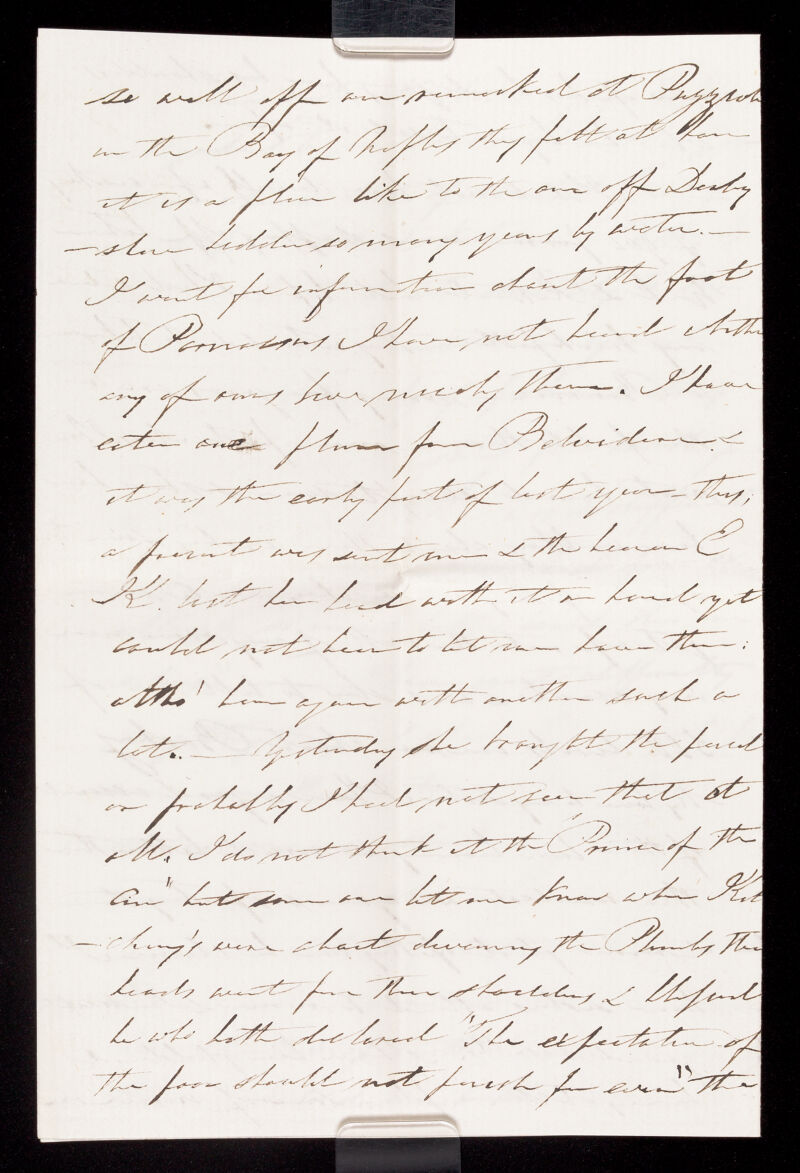 so well off are remarked at Puzzioli
in the Bay of Naples they felt at home
it is a place like to the one off Derby
- shire hidden so many years by water. -
I want for information about the foot
of Parnassus I have not heard whether
any of ours have nearly them. I have
eaten one plum from Belvidere &
it was the early part of last year - this,
a present was sent me & the hearer E
K. lost her head with it in hand yet
could not bear to let me have them:
altho' home again with another such a
lot. - Yesterday she brought the parcel
or probably I had not seen that at
all. I do not think it the "Prince of the
air" but some one let me know when Kit
- ching's were about devouring the Plumbs their
heads went from their shoulders &
he who hath declared "The expectation of
the poor should not perish for ever" the